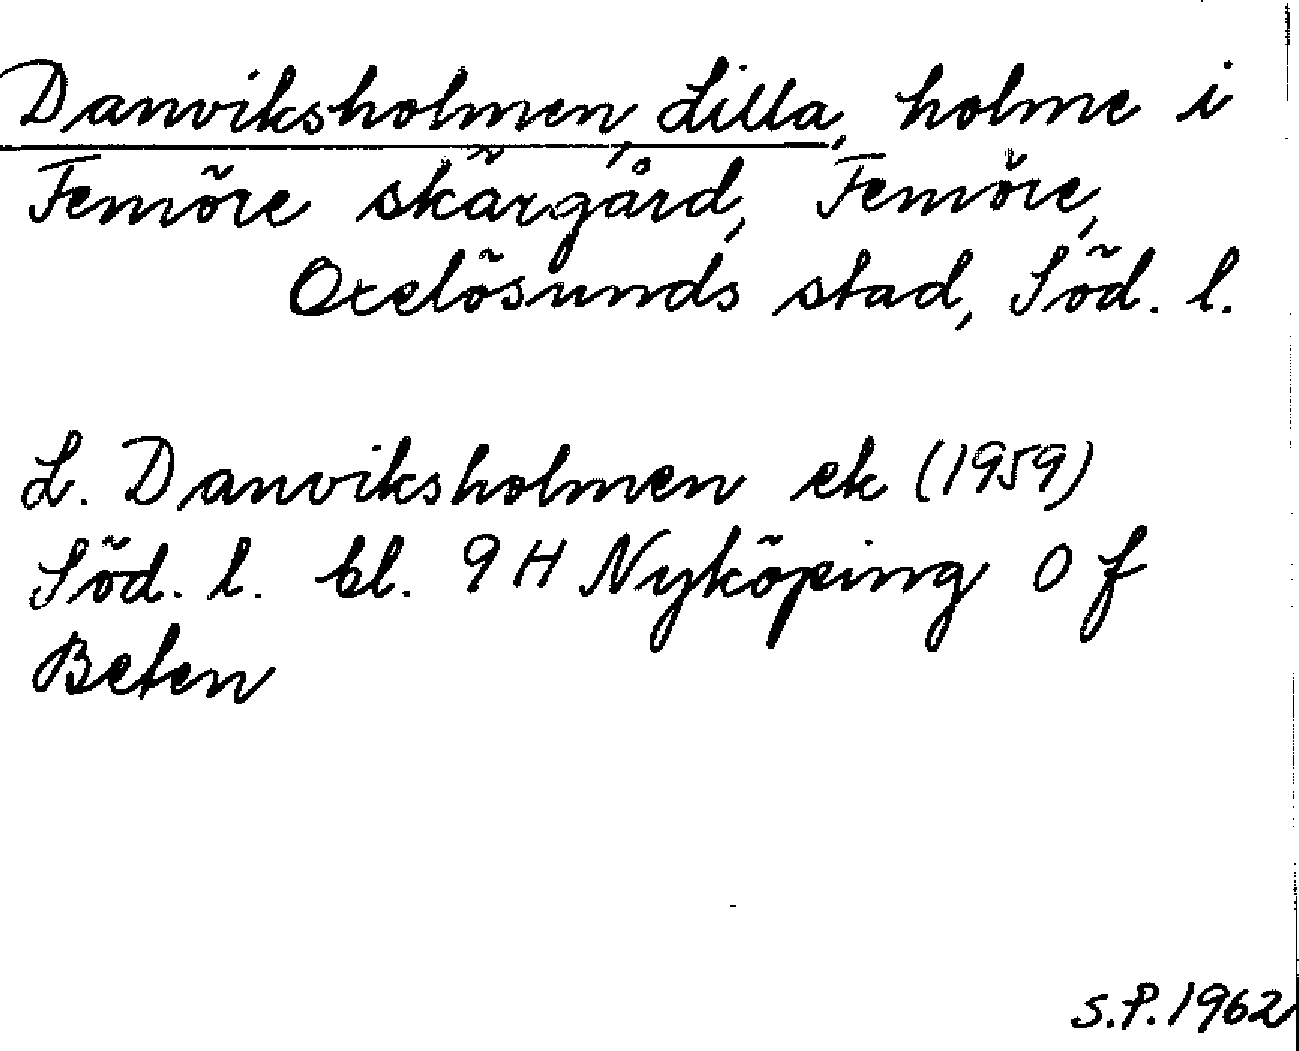 Danviksholmen, Lilla, holme i
Femöre skärgård, Femöre,
Oxelösunds stad, Söd. l.
L. Danviksholmen ek (1959)
Söd. l. bl. 9 H Nyköping 0 f
Beten
S.P. 1962